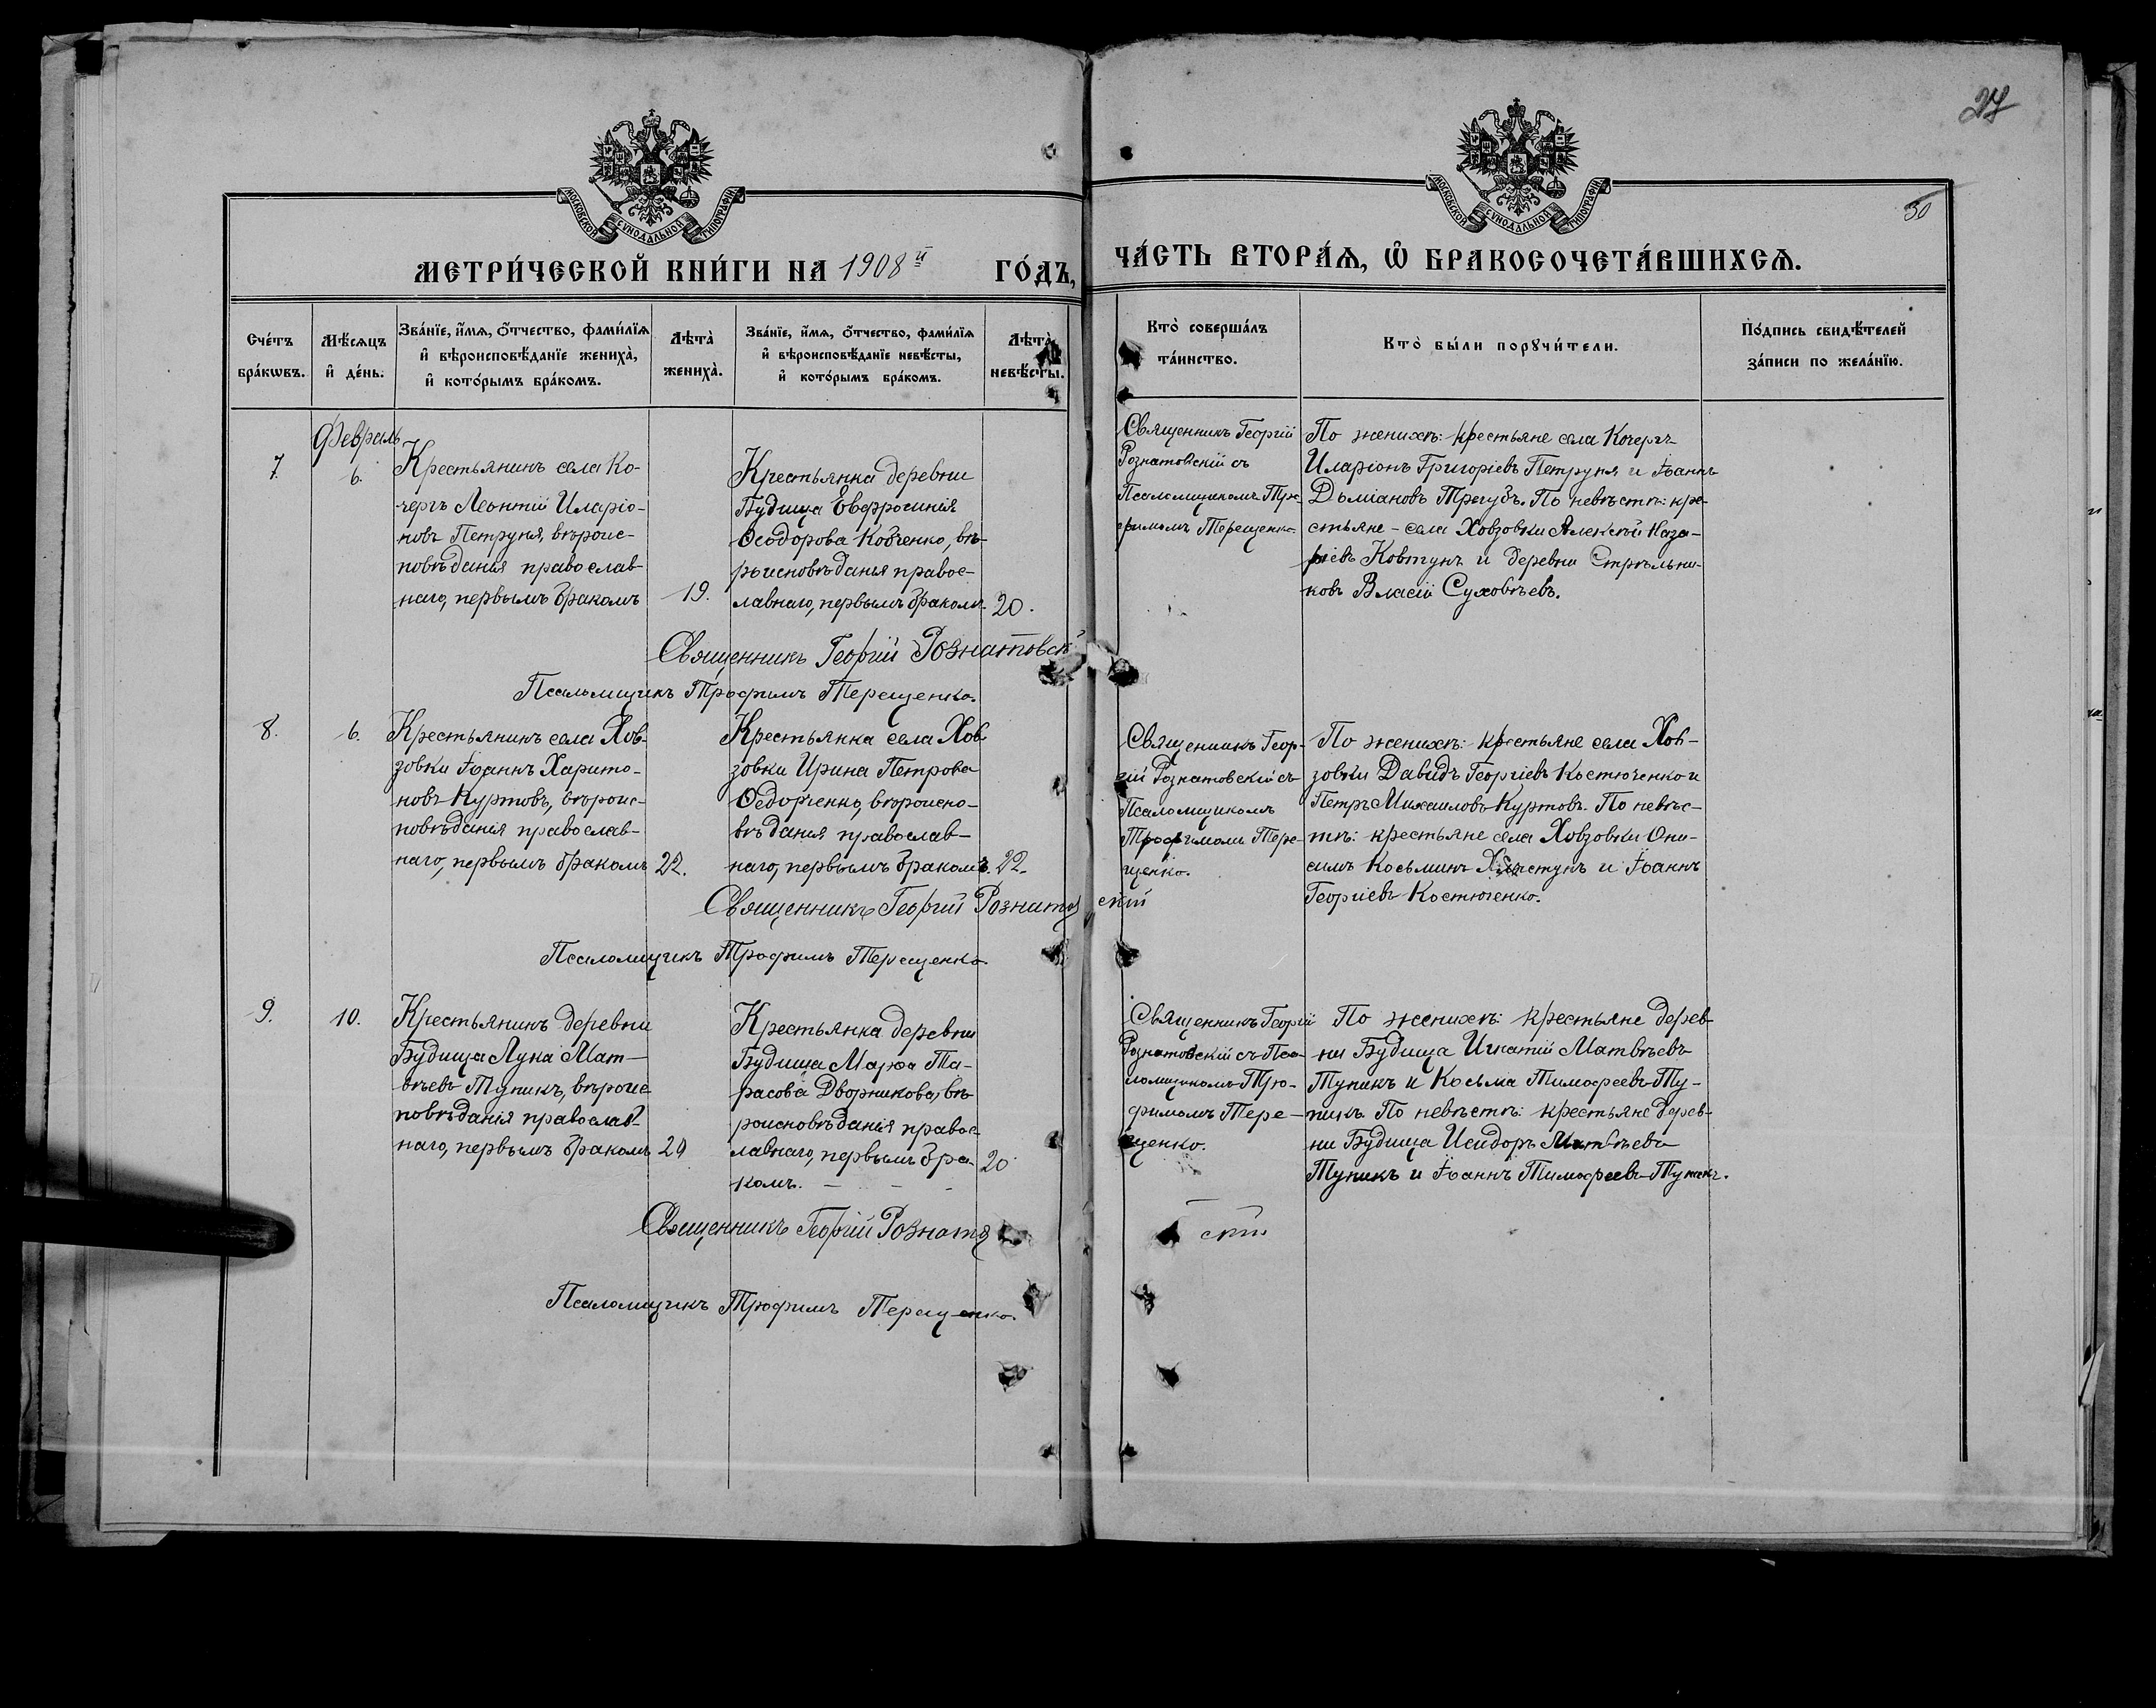 27
50
МОСКОВСКОЙ СѴНОДАЛЬНОЙ ТИПОГРАФІИ
МОСКОВСКОЙ СѴНОДАЛЬНОЙ ТИПОГРАФІИ
МЕТРИ́ЧЕСКОЙ КНИ́ГИ НА 1908й ГО́ДЪ,
ЧА́СТЬ ВТОРА́Ѧ, Ѽ БРАКОСОЧЕТА́ВШИХСѦ.
Сче́тъ
бра́кѡвъ.
Мѣ́сѧцъ
и҆ де́нь.
Зва́нїе, и҆́мѧ, ѻ҆́тчество, фами́лїѧ
и҆ вѣроисповѣ́данїе жениха̀,
и҆ кото́рымъ бра́комъ.
Лѣта̀
жениха̀.
Зва́нїе, и҆́мѧ, ѻ҆́тчество, фами́лїѧ
и҆ вѣроисповѣ́данїе невѣ́сты,
и҆ кото́рымъ бра́комъ.
Лѣта̀
невѣ́сты.
Кто̀ соверша́лъ
та́инство.
Кто̀ бы́ли порꙋчи́тели.
По́дпись свидѣ́телей
за́писи по жела́нїю.
Февраль
7.
6.
Крестьянинъ села Ко-
чергъ Леонтій Иларіо-
новъ Петруня, вѣроис-
повѣданія православ-
наго, первымъ бракомъ
19.
Крестьянка деревни
Будища Евфросинія
Ѳеодорова Ковченко, вѣ-
роисповѣданія правос-
лавнаго, первымъ бракомъ.
20.
Священникъ Георгій
Рознатовскій съ
Псаломщикомъ Тро-
фимомъ Терещенко.
По женихѣ: крестьяне села Кочергъ
Иларіонъ Григоріевъ Петруня и Іоаннъ
Доміановъ Трегубъ. По невѣстѣ: кре-
стьяне - села Ховзовки Алексѣй Наза-
ріевъ Ковтунъ и деревни Стрѣльни-
ковъ Власій Суховѣевъ.
Священникъ Георгій Рознатовскій
Псаломщикъ Трофимъ Терещенко.
8.
6.
Крестьянинъ села Хов-
зовки Іоаннъ Харито-
новъ Куртовъ, вѣроис-
повѣданія православ-
наго, первымъ бракомъ
22.
Крестьянка села Хов-
зовки Ирина Петрова
Ѳедорченко, вѣроиспо-
вѣданія православ-
наго, первымъ бракомъ.
22.
Священникъ Геор-
гій Рознатовскій съ
Псаломщикомъ
Трофимомъ Тере-
щенко.
По женихѣ: крестьяне села Хов-
зовки Давидъ Георгіевъ Костюченко и
Петръ Михаиловъ Куртовъ. По невѣс-
тѣ: крестьяне села Ховзовки Они-
симъ Косьминъ и Іоаннъ
Георгіевъ Костюченко.
Священникъ Георгій Рознатовскій
Псаломщикъ Трофимъ Терещенко
9.
10.
Крестьянинъ деревни
Будища Лука Мат-
вѣевъ Тупикъ, вѣроис
повѣданія православ-
наго, первымъ бракомъ
Крестьянка деревни
Будища Марѳа Та-
расова Дворникова, вѣ-
роисповѣданія правос-
лавнаго, первымъ бра-
комъ.
20
Священникъ Георгій
Рознатовскій съ Пса-
ломщикомъ Тро-
фимомъ Тере-
щенко.
По женихѣ: крестьяне дерев-
ни Будища Игнатій Матвѣевъ
Тупикъ и Косьма Тимофеевъ Ту-
пикъ. По невѣстѣ: крестьяне дерев-
ни Будища Исидоръ Матвѣевъ
Тупикъ и Іоаннъ Тимофеевъ Тупикъ.
Священникъ Георгій Рознатовскій
Псаломщикъ Трофимъ Терещенко.